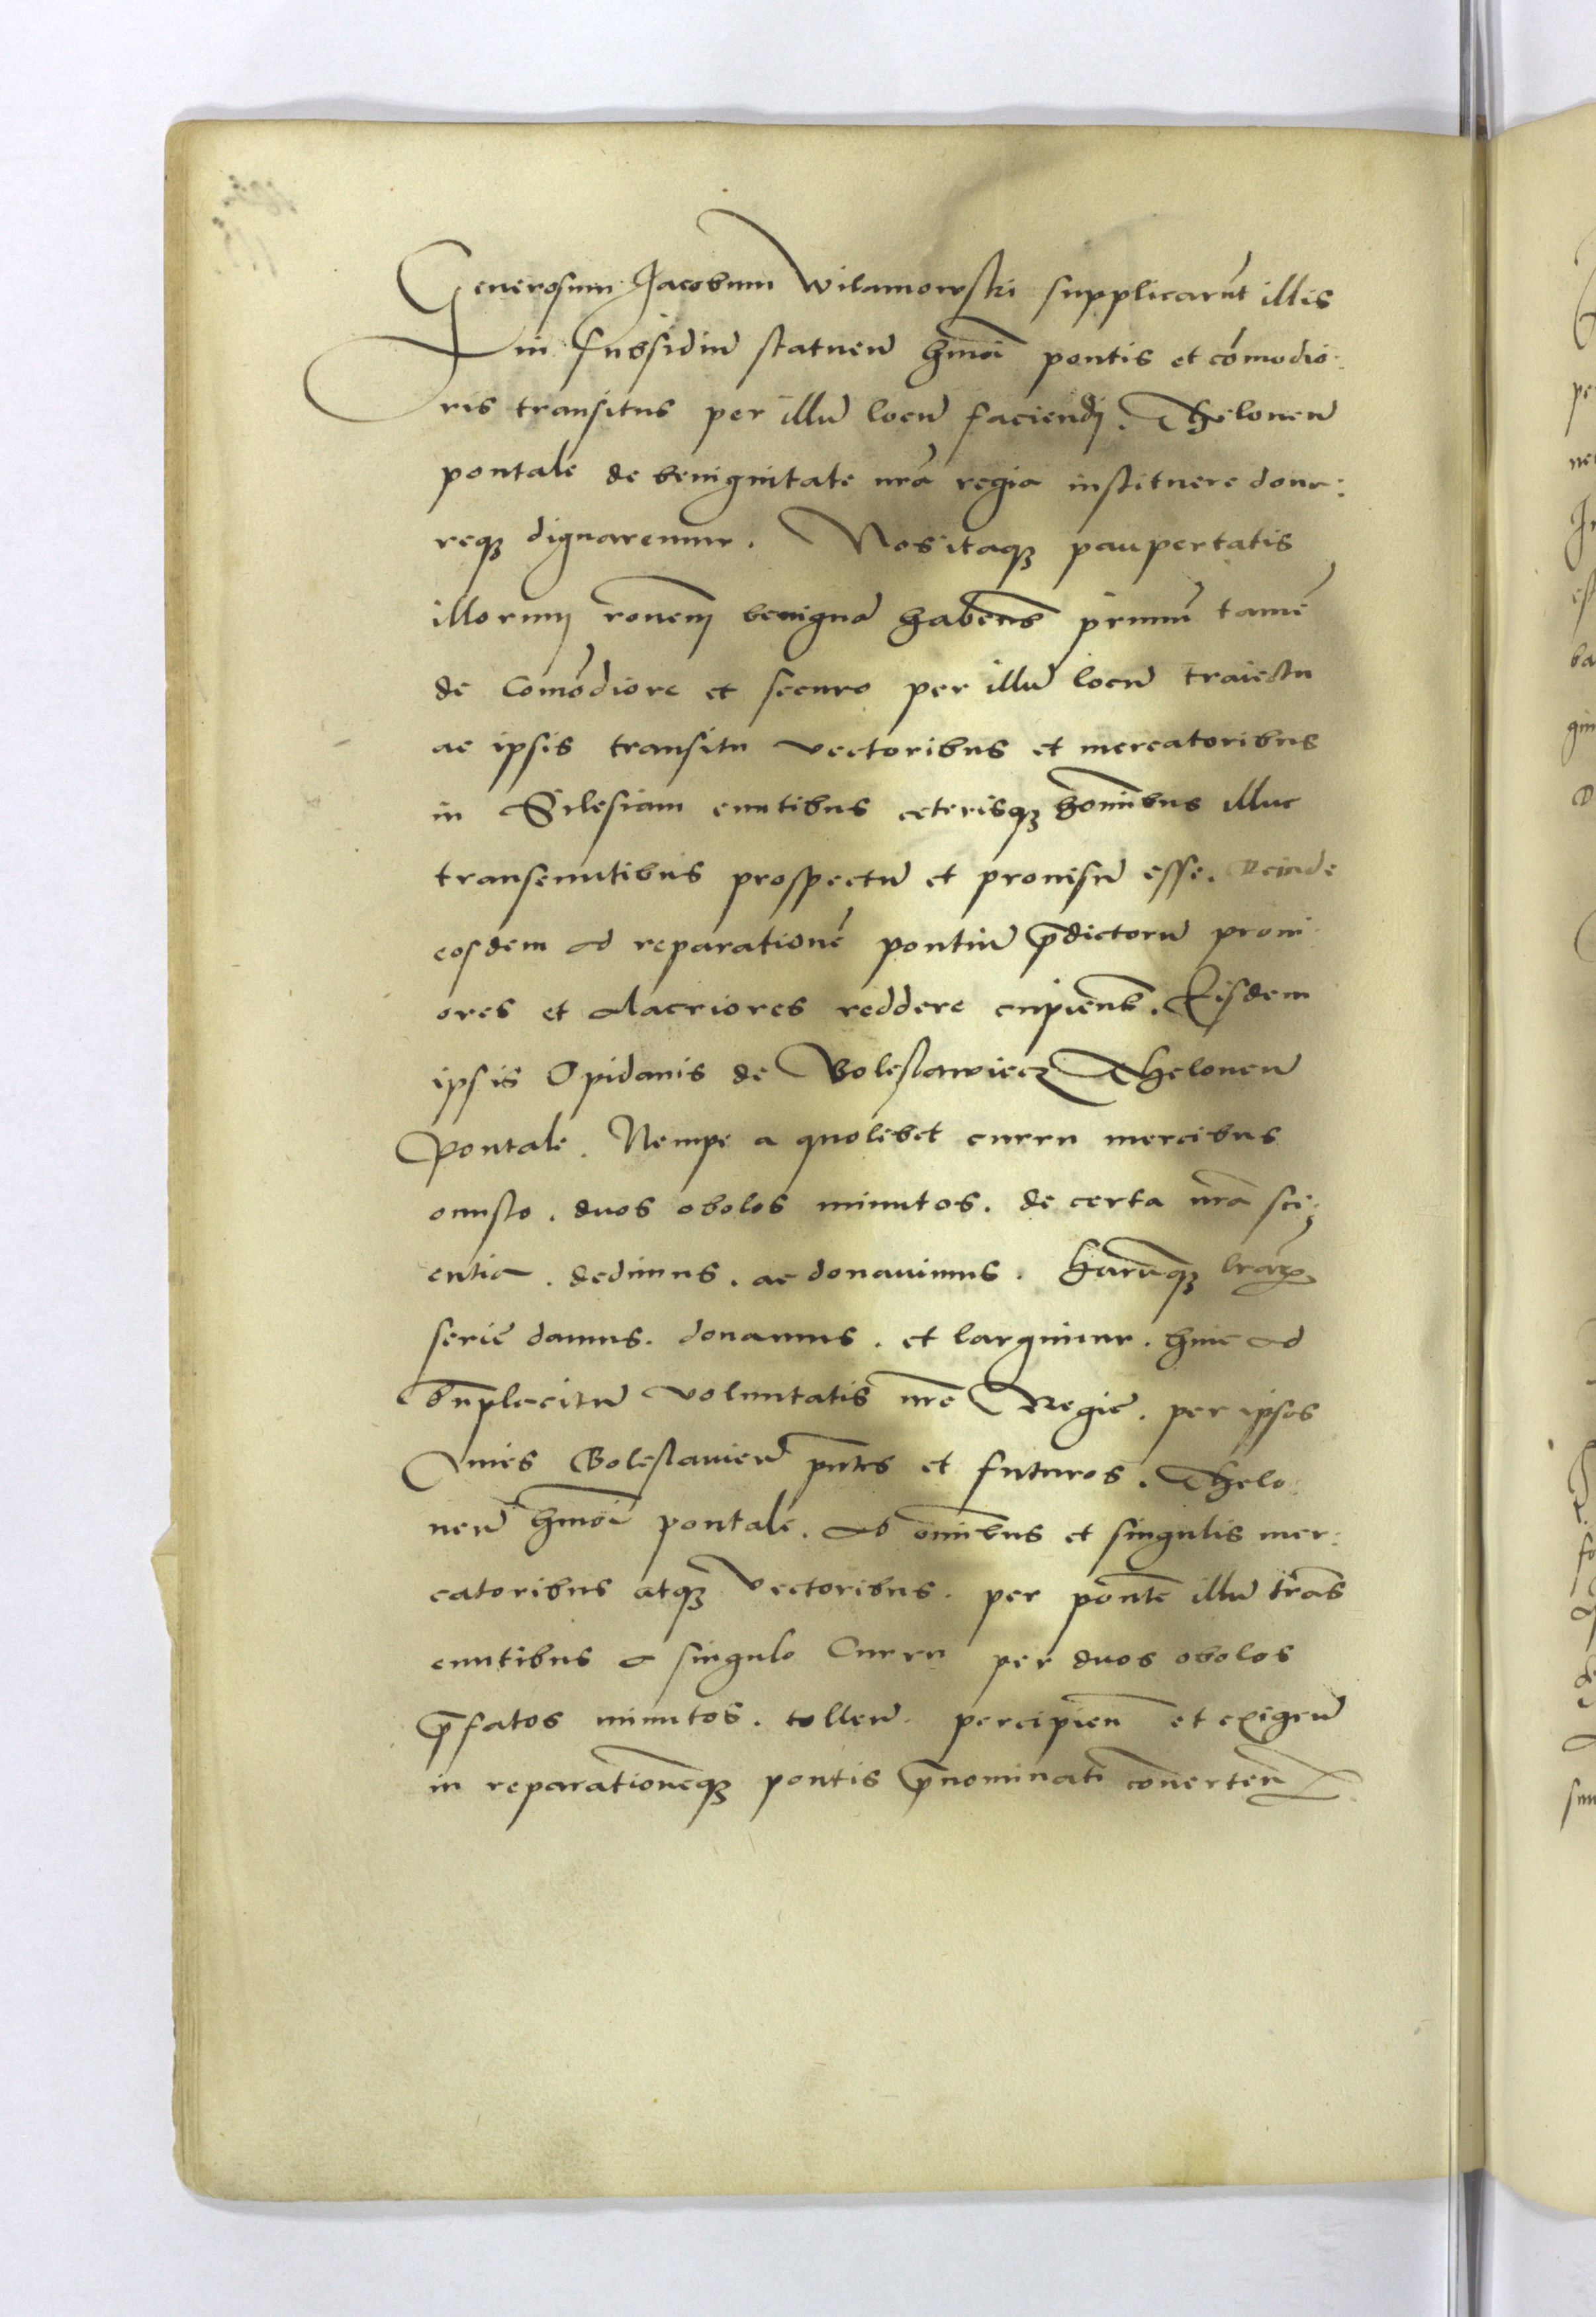 Generosum Jacobum Wilamowski supplicarūt illis
in subsidiū statuen̄ hm̄oi pontis et cōmodio:
ris transitus per illū locū faciendj. Theloneū
pontale de benignitate nr̄a regia instituere dona:
req₃ dignaremur. Nos itaq₃ paupertatis
illorum ronem benignā haben̄s primū tamē
de Comōdiore et securo per illū locū traiectu
ac ipsis transitu vectoribus et mercatoribus
in Silesiam euntibus ceterisq₃ hom̄ibus illuc
transeuntibus prospectū et prouisū esse. Deinde
eosdem ad reparationē pontiū p̄dictorū proni
ores et alacriores reddere cupien̄s. Eisdem
ipsis Opidanis de Boleslawiecz Theloneū
Pontale. Nempe a quolibet curru mercibus
onusto. duos obolos minutos. de certa nr̄a sci:
entia. dedimus. ac donauimus. harūq₃ lr̄aꝝ
serie damus. donamus. et largimur. hinc ad
bn̄placitū voluntatis nr̄e Regie. per ipsos
Ciues Boleslauien̄ pn̄tes et futuros. Thelo
neū hm̄oi pontale. ab om̄ibus et singulis mer:
catoribus atq₃ vectoribus. per pontē illū trās
euntibus a singulo Curru per duos obolos
p̄fatos minutos. tollen̄. percipien̄ et exigen̄
in reparationēq₃ pontis p̄nominati cōuerten̄